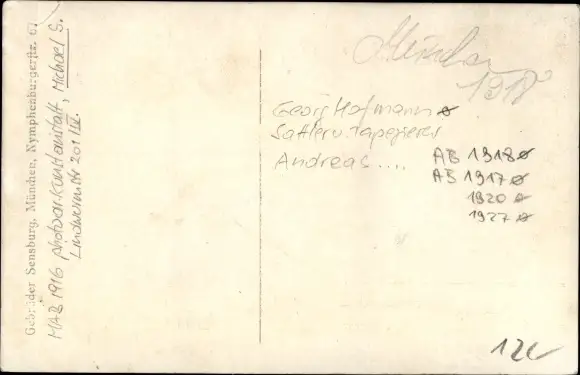 Gebrüder Sensburg, München, Nymphenburgerstr. 61
MAB 1916 photogr. Kunstanstalt, Michael S.
Lindwurmstr 201 III.
München
1918
Georg Hofmann ø
Sattler u. Tapezierer
Andreas ....
AB 1918 ø
AB 1917 ø
1920 ø
1927 ø
12.-